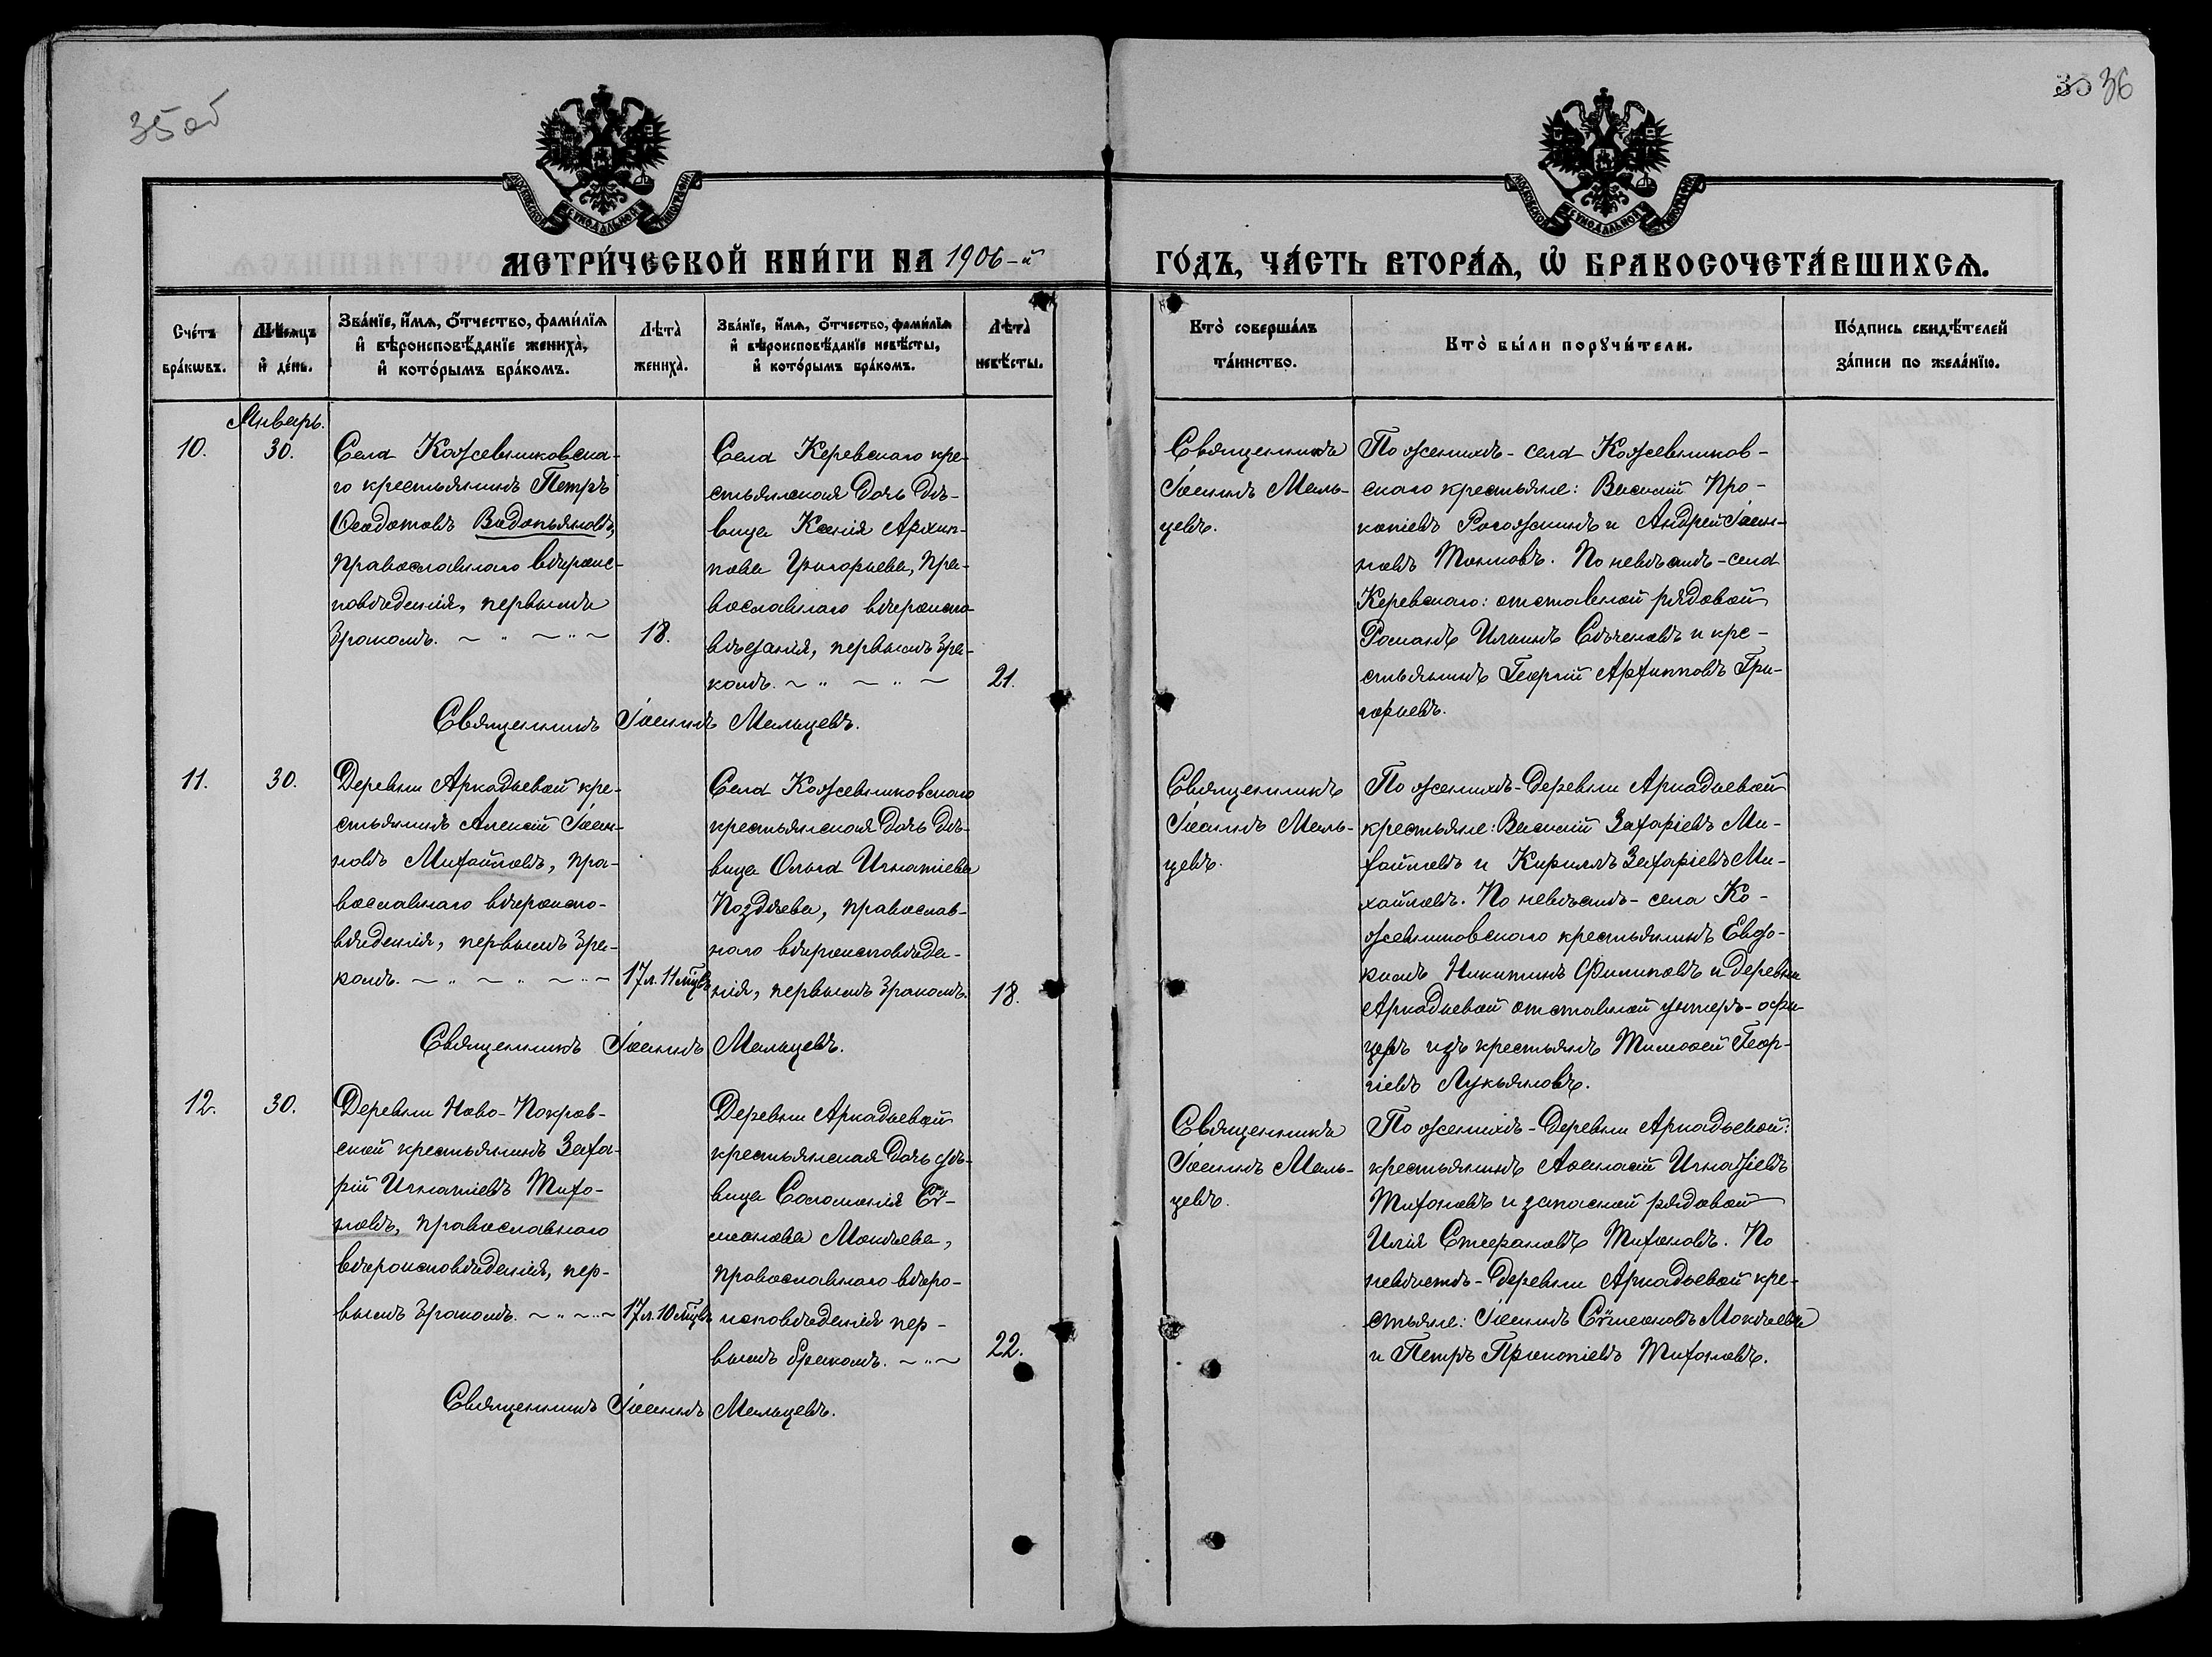 35 об
35 36
МОСКОВСКОЙ СѴНОДАЛЬНОЙ ТИПОГРАФІИ
МОСКОВСКОЙ СѴНОДАЛЬНОЙ ТИПОГРАФІИ
МЕТРИ́ЧЕСКОЙ КНИ́ГИ НА 1906-й
ГО́ДЪ, ЧА́СТЬ ВТОРА́Ѧ, Ѽ БРАКОСОЧЕТА́ВШИХСѦ.
Сче́тъ бра́кѡвъ.
Мѣ́сѧцъ и҆ де́нь.
Зва́нїе, и҆́мѧ, ѻ҆́тчество, фами́лїѧ
и҆ вѣроисповѣ́данїе жениха̀,
и҆ кото́рымъ бра́комъ.
Лѣта̀ жениха̀.
Зва́нїе, и҆́мѧ, ѻ҆́тчество, фами́лїѧ
и҆ вѣроисповѣ́данїе невѣ́сты,
и҆ кото́рымъ бра́комъ.
Лѣта̀ невѣ́сты.
Кто̀ соверша́лъ та́инство.
Кто̀ бы́ли порꙋчи́тели.
По́дпись свидѣ́телей за́писи по жела́нїю.
Январь.
10.
30.
Села Кожевниковска-
го крестьянинъ Петръ
Ѳеодотовъ Водопьяновъ,
православнаго вѣроис-
повѣденія, первымъ
бракомъ.
18.
Села Керевскаго кре-
стьянская дочь дѣ-
вица Ксенія Архип-
пова Григорьева, пра-
вославнаго вѣроиспо-
вѣданія, первымъ бра-
комъ.
21.
Священникъ
Іоаннъ Маль-
цевъ.
По женихѣ - села Кожевников-
скаго крестьяне: Василій Про-
копіевъ Рогожкинъ и Андрей Іоан-
новъ Тонковъ. По невѣстѣ - села
Керевскаго: отставной рядовой
Романъ Ильинъ Сѣченовъ и кре-
стьянинъ Георгій Архипповъ Гри-
горьевъ.
Священникъ Іоаннъ Мальцевъ.
11.
30.
Деревни Аркадьевой кре-
стьянинъ Алексій Іоан-
новъ Михайловъ, пра-
вославнаго вѣроиспо-
вѣденія, первымъ бра-
комъ.
17 л. 11 мѣц.
Села Кожевниковскаго
крестьянская дочь дѣ-
вица Ольга Игнатіева
Поздѣева, православ-
наго вѣроисповѣде-
нія, первымъ бракомъ.
18.
Священникъ
Іоаннъ Маль-
цевъ.
По женихѣ - деревни Аркадьевой
крестьяне: Василій Захаріевъ Ми-
хайловъ и Кириллъ Захаріевъ Ми-
хайловъ. По невѣстѣ - села Ко-
жевниковскаго крестьянинъ Евдо-
кимъ Никитинъ Филиповъ и деревни
Аркадьевой отставной унтеръ-офи-
церъ изъ крестьянъ Тимоѳей Геор-
гіевъ Лукьяновъ.
Священникъ Іоаннъ Мальцевъ.
12.
30.
Деревни Ново-Покров-
ской крестьянинъ Заха-
рій Игнатіевъ Тихо-
новъ, православнаго
вѣроисповѣденія, пер-
вымъ бракомъ.
17 л. 10 мѣц.
Деревни Аркадьевой
крестьянская дочь дѣ-
вица Соломонія Сѵ-
меонова Мокѣева,
православнаго вѣро-
исповѣденія пер-
вымъ бракомъ.
22.
Священникъ
Іоаннъ Маль-
цевъ.
По женихѣ - деревни Аркадьевой:
крестьянинъ Аѳанасій Игнатіевъ
Тихоновъ и запасной рядовой
Илія Стефановъ Тихоновъ. По
невѣстѣ - деревни Аркадьевой кре-
стьяне: Іоаннъ Сѵмеоновъ Мокѣевъ
и Петръ Прокопіевъ Тихоновъ.
Священникъ Іоаннъ Мальцевъ.